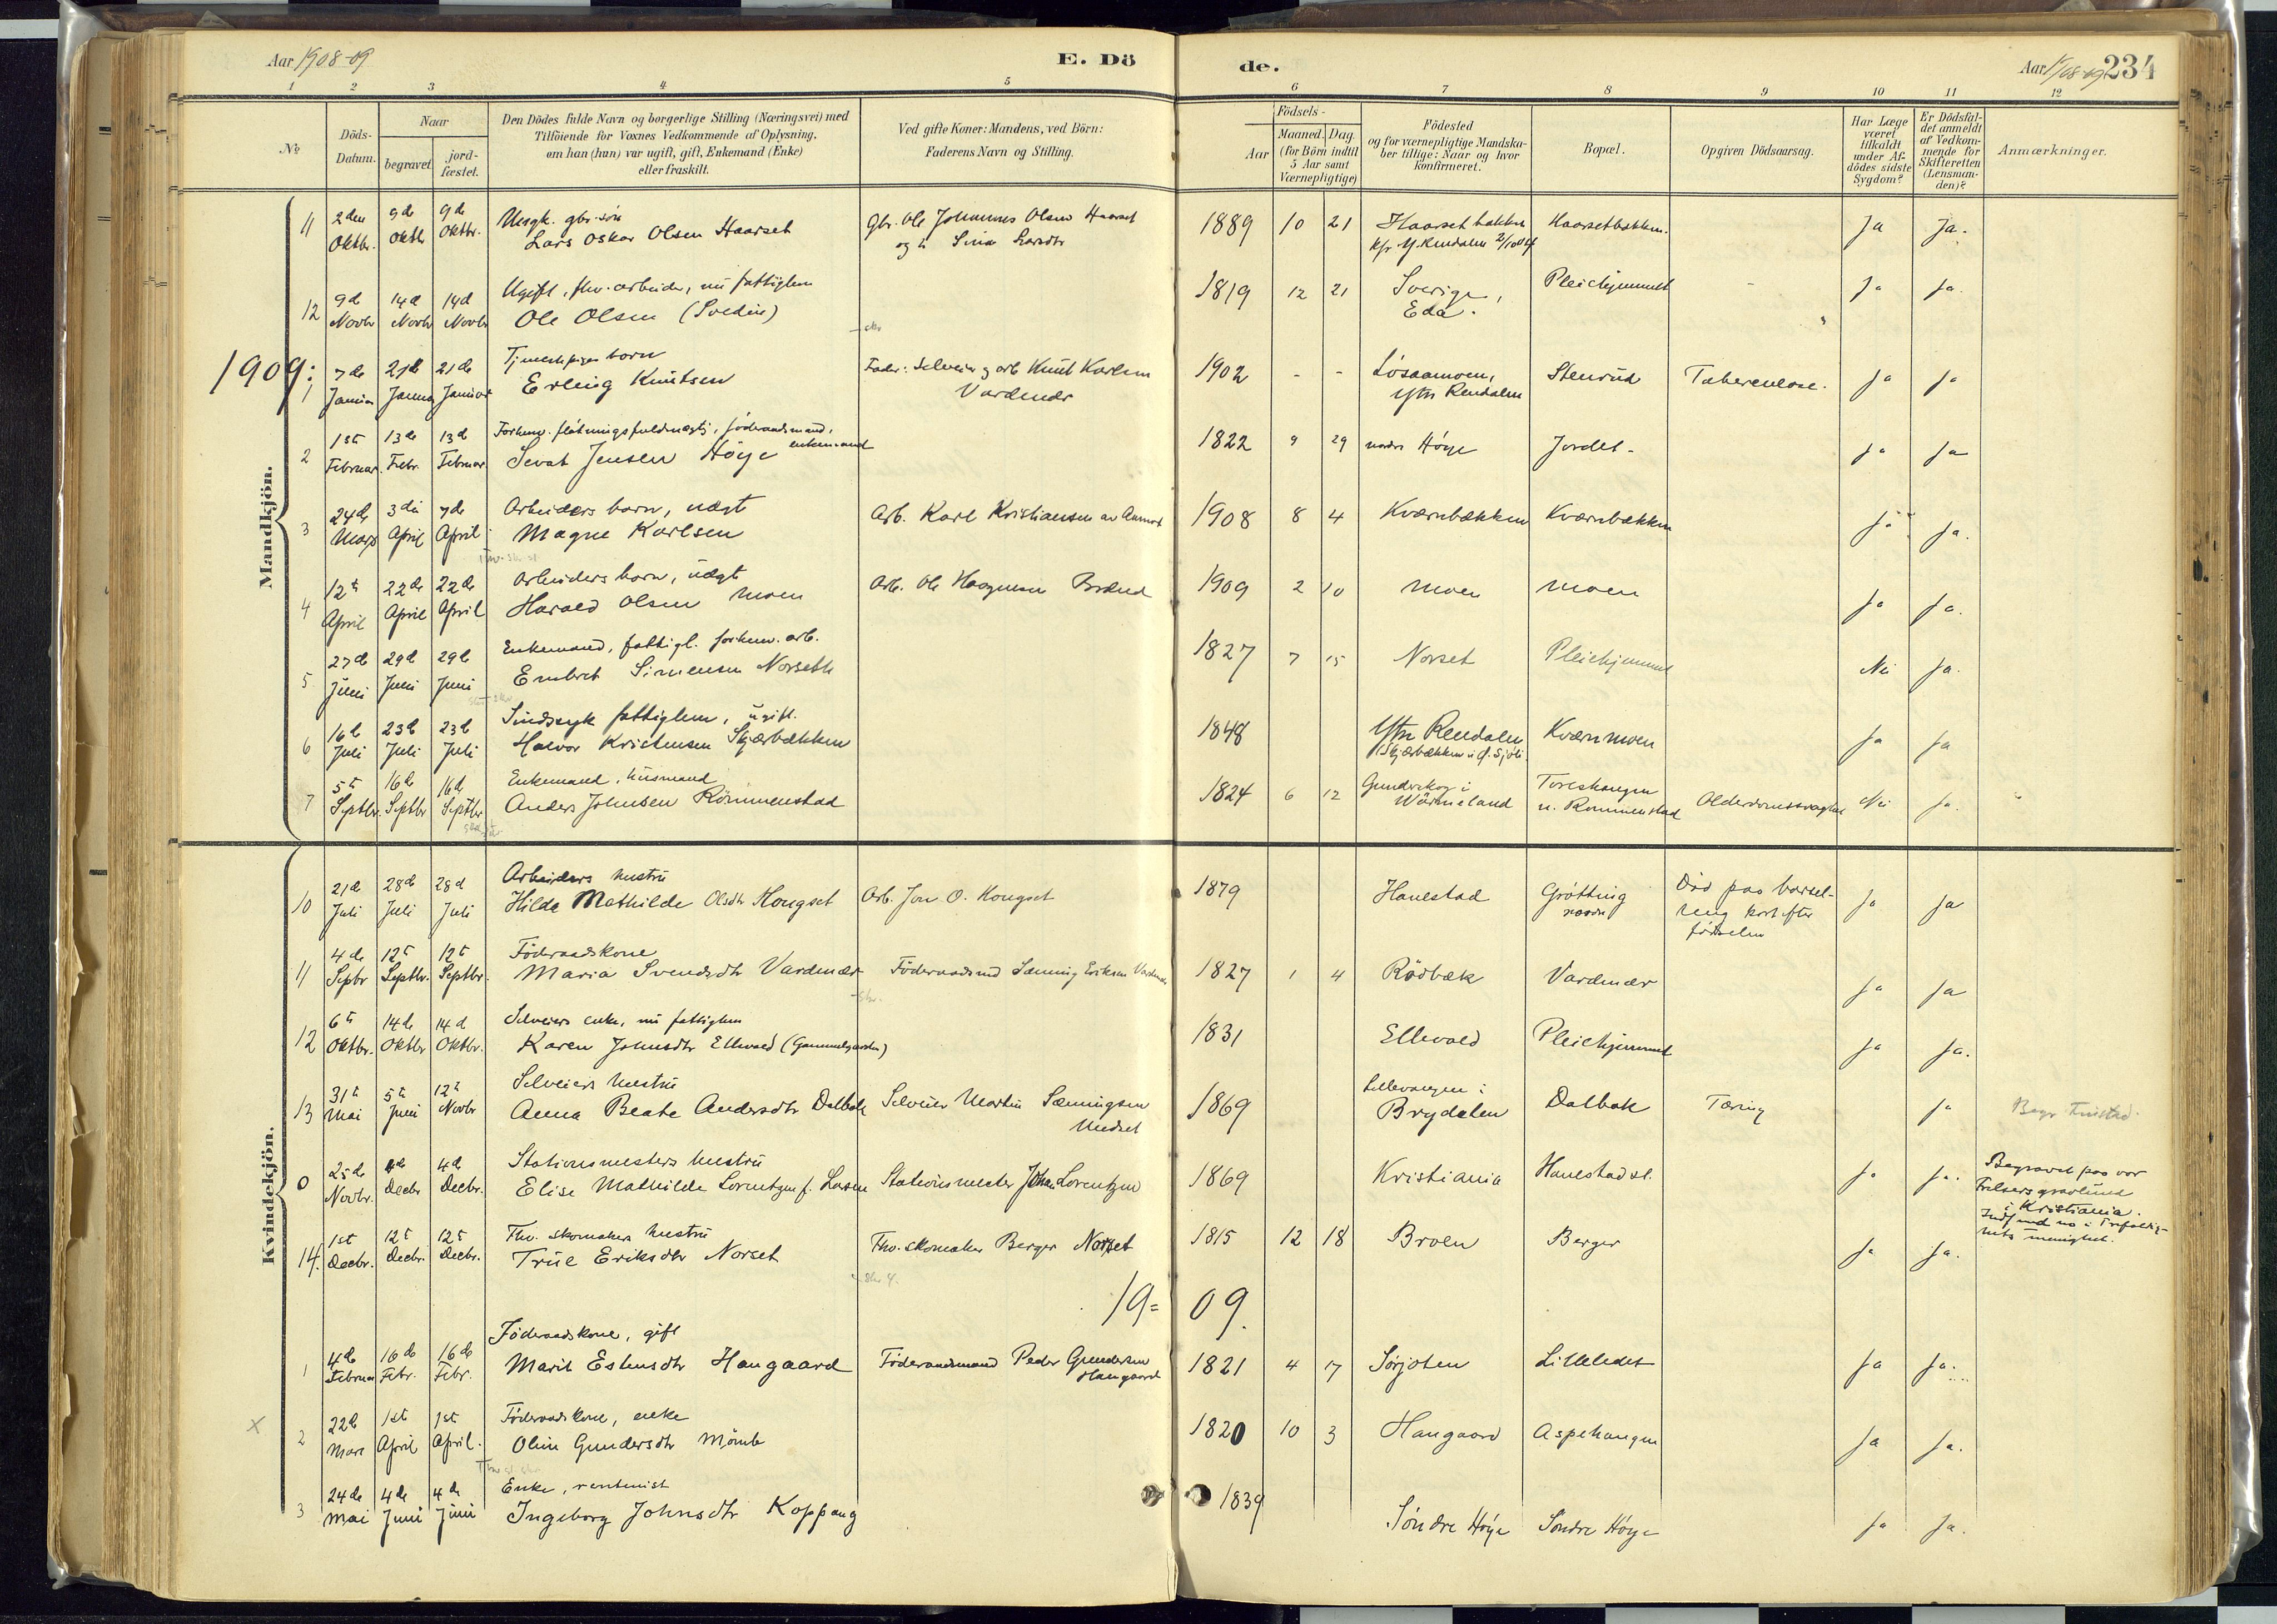 Aar 1908-09
E. Dö
de.
Aar 1908-09 234
1 2 3 4 5 6 7 8 9 10 11 12
No
Döds-Datum.
Naar
begravet
jord-fæstet.
Den Dödes fulde Navn og borgerlige Stilling (Næringsvei) med
Tilföiende for Voxnes Vedkommende af Oplysning,
om han (hun) var ugift, gift, Enkemand (Enke)
eller fraskilt.
Ved gifte Koner: Mandens, ved Börn:
Faderens Navn og Stilling.
Födsels-
Aar
Maaned. Dag.
(for Börn indtil
5 Aar samt
Værnepligtige)
Födested
og for værnepligtige Mandska-
ber tillige: Naar og hvor
konfirmeret.
Bopæl.
Opgiven Dödsaarsag.
Har Læge
været
tilkaldt
under Af-
dödes sidste
Sygdom?
Er Dödsfal-
det anmeldt
af Vedkom-
mende for
Skifteretten
(Lensman-
den)?
Anmærkninger.
Mandkjön.
11 2den Oktbr. 9de Oktbr 9de Oktbr. Ungk. gbr. søn
Lars Oskar Olsen Haarset
Gbr. Ole Johannes Olsen Haarset
og h
1889 10 21 Haarsetbakken Haarsetbakken. Ja Ja.
12 9de Novbr 14d Novbr 14d Novbr Ugift, fhv. arbeider, nu fattiglem
Ole Olsen (Svedin)
1819 12 21 Sverige, Pleiehjemmet Ja Ja.
Eda.
1909:
1 7de Januar 21de Januar 21de Januar Tjenestpiges barn
Erling Knutsen
Fader: Selveier og arb Knut Karlsen
Vardenær
1902 - - Løsaamoen, Stenrud Tuberculose. Ja Ja
Ytre Rendalen
2 1st Februar. 13de Febr. 13d Februar. Forhenv. fløtningsfuldmægtig, föderaadsmand,
enkemand
Sevat Jensen Höye
1822 9 29 nordre Höye Jordet. Ja Ja
3 24de Mars 3die April 7de April Arbeiders barn, uægt
Magne Karlsen
Arb. Karl Kristiansen av Aamot
1908 8 4 Kværnbækken Kværnbækken Ja Ja.
4 12te April 22de April 22de April Arbeiders barn, uægt
Harald Olsen Moen
Arb. Ole Brænd
1909 2 10 Moen Moen Ja Ja.
5 27de Juni 29d Juni 29d Juni Enkemand, fattigl. forhenv. arb.
Embret Simensen Norseth
1827 7 15 Norset Pleiehjemmet Nei Ja.
6 16d Juli 23d Juli 23d Juli Sindssyk fattiglem, ugift.
Halvor Kristensen Skjærbækken
1848 Ytre Rendalen Kværnmoen Ja Ja
7 5te Septbr. 16d Septbr 16d Septbr Enkemand, husmand
Anders Johnsen Rönnenstad
1824 6 12 Gunderskog i Toreshaugen Alderdomssvaghed Nei Ja.
Wärmeland u. Rönnenstad
Kvindekjön.
10 21d Juli 28d Juli 28d Juli Arbeiders hustru
Hilde Mathilde Olsdtr Kongset
Arb. Jon O. Kongset
1879 Hanestad Grötting Død paa barsel- Ja Ja
nordre seng kort efter
fødselen
11 4de Sepbr 12t Septbr. 12t Septbr. Föderaadskone
Maria Svendsdtr Vardenær
Föderaadsmd Sæming Eriksen Vardenær
1827 1 4 Rödbæk Vardenær Ja Ja
12 6te Oktbr. 14de Oktbr 14d Oktbr. Selveiers enke, nu fattiglem
Karen Johnsdtr Ellevold (Gammelgarden)
1831 Ellevold Pleiehjemmet Ja Ja.
13 31t Mai 5te Juni 12t Novbr Selveiers hustru
Anna Beate Andersdtr Dalbak
Selveier Martin Sæmingsen
Undset
1869 Lillevangen i Dalbak Tæring Ja
Brydalen
0 25de Novbr. 4de Decbr 4d Decbr. Stationsmesters hustru
Elise Mathilde Lorentzen f. Larsen
Stationsmester Johan Lorentzen
1869 Kristiania Hanestad st. Ja Ja. Begravet paa vor
Frelsers gravlund
i Kristiania.
14. 1st Decbr. 12t Decbr. 12t Decbr. Fhv. skomakers hustru
True Eriksdtr Norset
Fhv. skomaker Berger Norset
1815 12 18 Broen Berger Ja Ja.
19=09.
1 4de Februar 16de Febr. 16de Febr. Föderaadskone, gift
Marit Estensdtr Haugaard
Föderaadsmand Peder Gundersen
Haugaard
1821 4 17 Sørjoten Lilleledet Ja Ja.
x
2 22d Mars 1st April 1st April. Föderaadskone, enke
Oline Gundersdtr Mömb
1820 10 3 Haugaard Aspehaugen Ja Ja.
3 24de Mai 4de Juni 4de Juni Enke, rentenist
Ingeborg Johnsdtr Koppang
1839 Söndre Höye Söndre Höye Ja Ja.